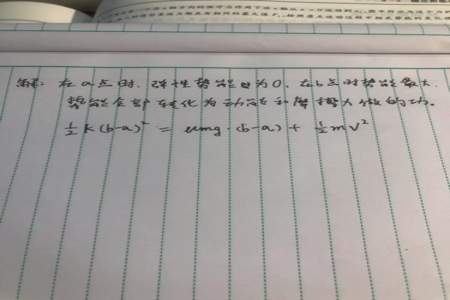 解：在a点时，弹性势能为0，在b点时势能最大，
势能全部转化为动能和摩擦力做的功。
½k(b-a)² = umg·(b-a) + ½mv²